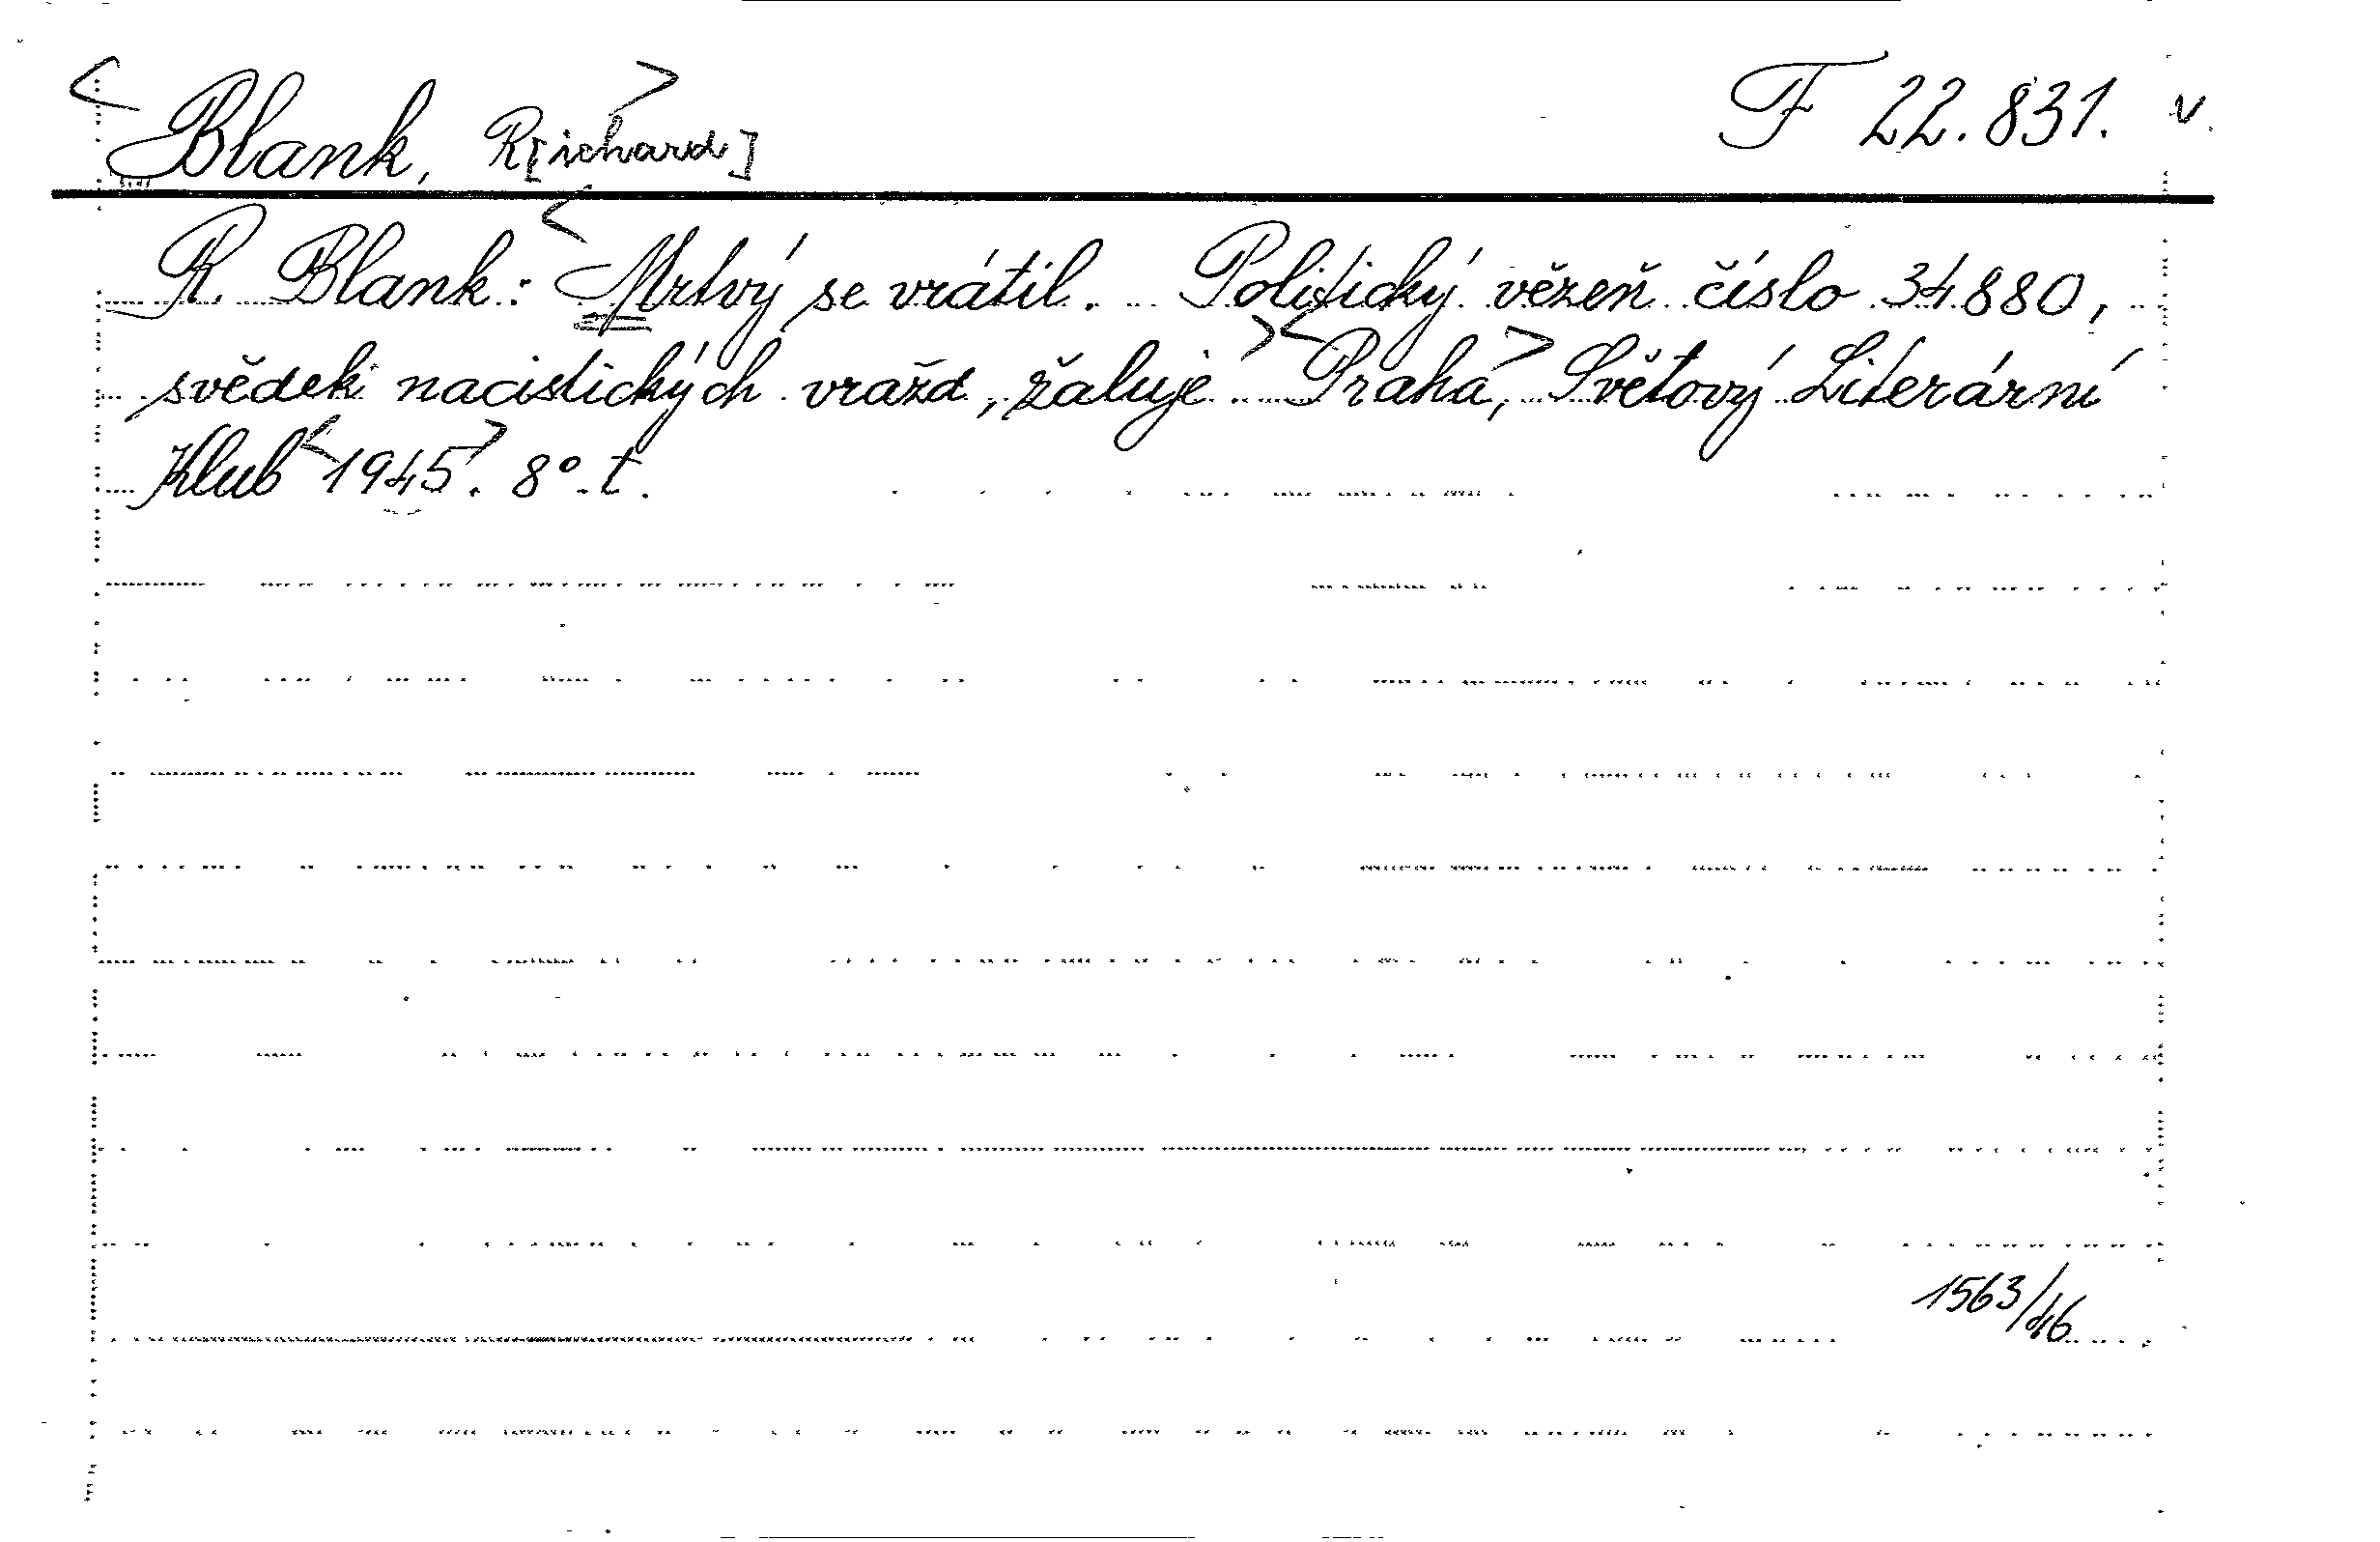 <Blank, R[ichard]> F 22.831. v.
R. Blank: <Mrtvý se vrátil. Politický vězeň číslo 34880,
svědek nacistických vražd, žaluje.> <Praha,> Světový Literární
Klub <1945>. 8°. t.
1563/46